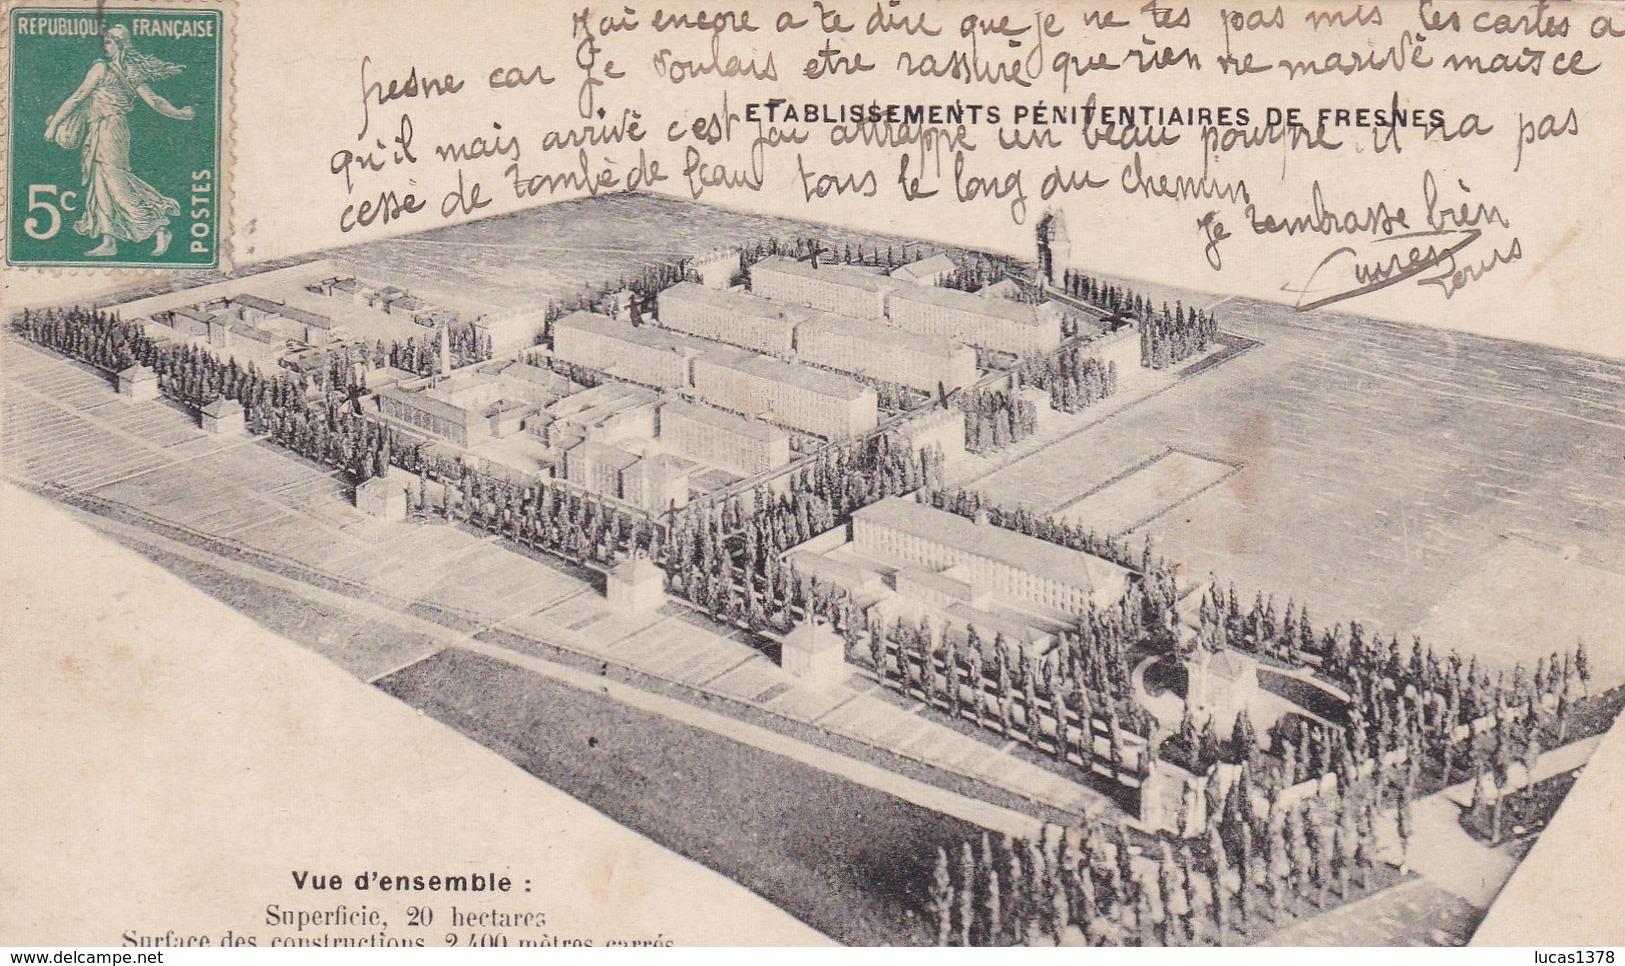 REPUBLIQUE FRANÇAISE
5c
POSTES
J'ai encore a te dire que je ne tes pas mis les cartes a
fresne car Je voulais etre rassuré que rien ne marivé mais ce
ETABLISSEMENTS PÉNITENTIAIRES DE FRESNES
qu'il mais arrivé c'est jai attrappé un beau pourpre il na pas
cessé de tombé de leau tous le long du chemin
Je tembrasse bien
Vue d'ensemble :
Superficie, 20 hectares
Surface des constructions, 2.400 mètres carrés
lucas1378